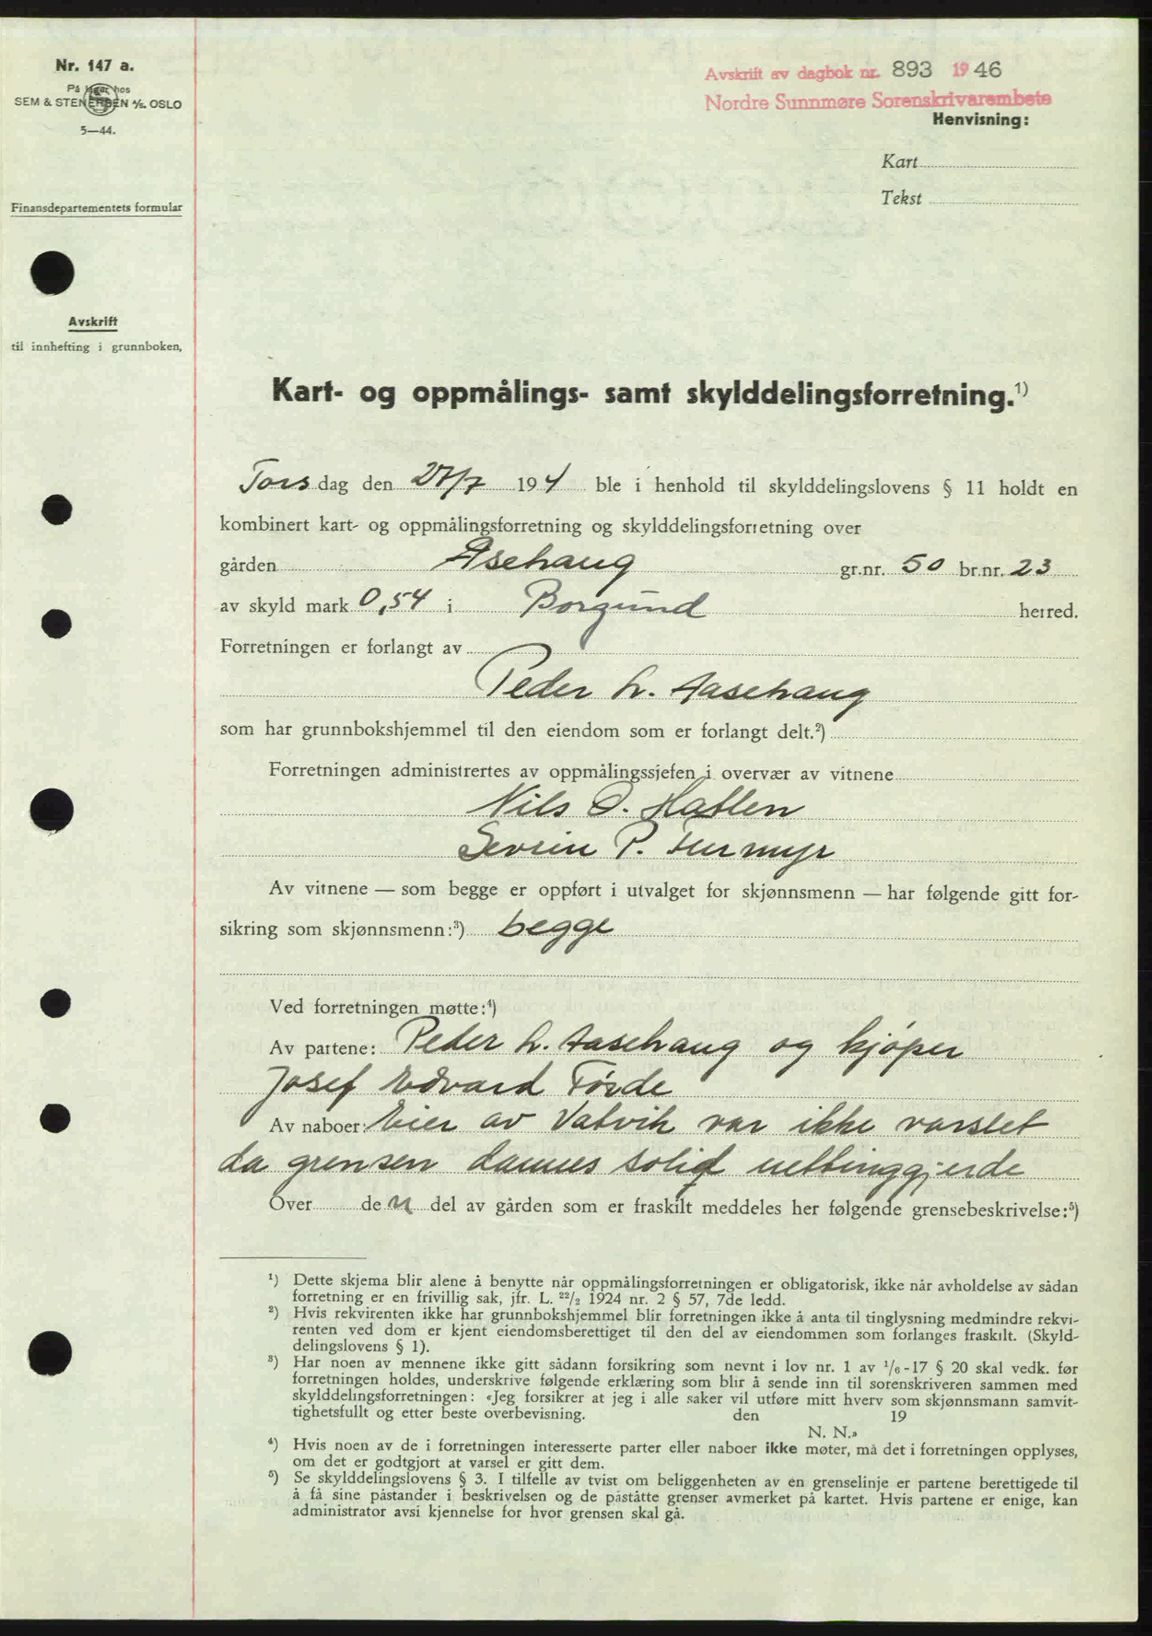 Nr. 147 a.
På lager hos
SEM & STENERSEN A/S. OSLO
5—44.
Finansdepartementets formular
Avskrift
til innhefting i grunnboken.
Avskrift av dagbok nr. 893 1946
Nordre Sunnmøre Sorenskrivarembete
Henvisning:
Kart
Tekst
Kart- og oppmålings- samt skylddelingsforretning.¹)
Torsdag den 27/7 194 ble i henhold til skylddelingslovens § 11 holdt en
kombinert kart- og oppmålingsforretning og skylddelingsforretning over
gården Åsehaug gr.nr. 50 br.nr. 23
av skyld mark 0,54 i Borgund herred.
Forretningen er forlangt av
Peder L. Aasehaug
som har grunnbokshjemmel til den eiendom som er forlangt delt.²)
Forretningen administrertes av oppmålingssjefen i overvær av vitnene
Nils O. Hatlen
Sevrin P. Furmyr
Av vitnene — som begge er oppført i utvalget for skjønnsmenn — har følgende gitt for-
sikring som skjønnsmenn:³) begge
Ved forretningen møtte:⁴)
Av partene: Peder L. Aasehaug og kjøper
Josef Edvard Førde
Av naboer: Eier av Vatvik var ikke varslet
da grensen dannes solid nettinggjerde
Over den del av gården som er fraskilt meddeles her følgende grensebeskrivelse:⁵)
¹) Dette skjema blir alene å benytte når oppmålingsforretningen er obligatorisk, ikke når avholdelse av sådan
forretning er en frivillig sak, jfr. L. 22/2 1924 nr. 2 § 57, 7de ledd.
²) Hvis rekvirenten ikke har grunnbokshjemmel blir forretningen ikke å anta til tinglysning medmindre rekvi-
renten ved dom er kjent eiendomsberettiget til den del av eiendommen som forlanges fraskilt. (Skyld-
delingslovens § 1).
³) Har noen av mennene ikke gitt sådann forsikring som nevnt i lov nr. 1 av 1/6-17 § 20 skal vedk. før
forretningen holdes, underskrive følgende erklæring som blir å sende inn til sorenskriveren sammen med
skylddelingsforretningen: «Jeg forsikrer at jeg i alle saker vil utføre mitt hverv som skjønnsmann samvit-
tighetsfullt og etter beste overbevisning. den 19
N. N.»
⁴) Hvis noen av de i forretningen interesserte parter eller naboer ikke møter, må det i forretningen opplyses,
om det er godtgjort at varsel er gitt dem.
⁵) Se skylddelingslovens § 3. I tilfelle av tvist om beliggenheten av en grenselinje er partene berettigede til
å få sine påstander i beskrivelsen og de påståtte grenser avmerket på kartet. Hvis partene er enige, kan
administrator avsi kjennelse for hvor grensen skal gå.